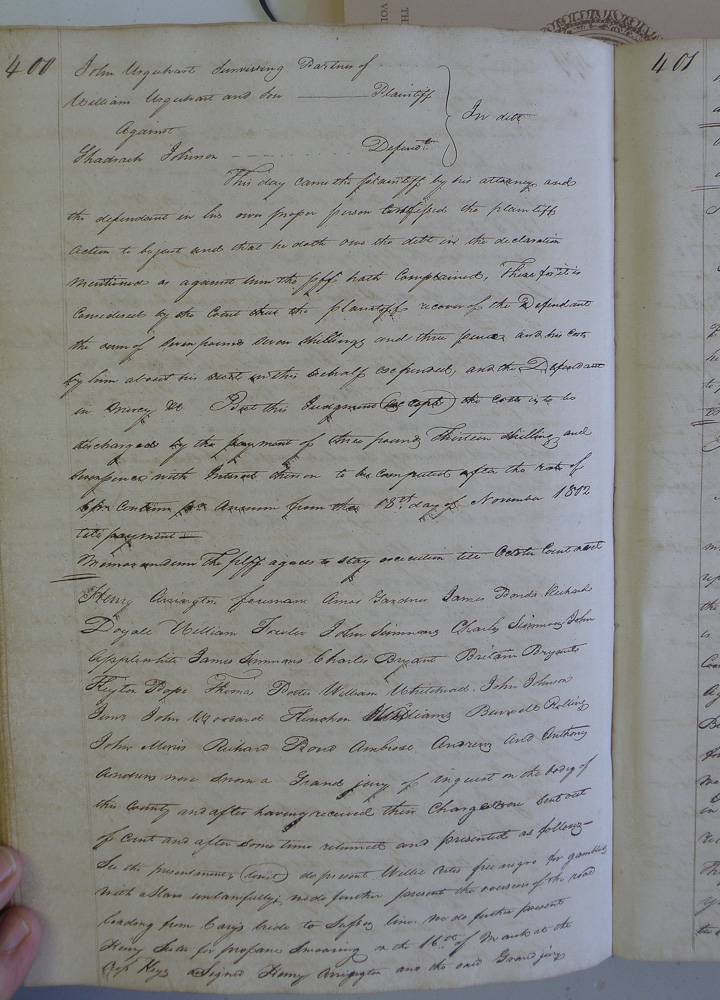 400
John Urquhart Surviving Partner of
William Urquhart and Son Plaintiff
Against
In debt
Shadrach Johnson Defend.t
This day came the plaintiff by his attorney and
the defendant in his own proper person the plaintiffs
action to be just and that he doth owe the debt in the declaration
mentioned as against him the plff hath Complained, Therefore it is
Considered by the Court that the plaintiff recover of the Defendant
the sum of Seven pounds Seven Shillings and three pence and his costs
by him about his suit in this behalf expended, and the Defendant
in mercy &c But this Judgment the costs is to be
discharged by the payment of three pounds Thirteen Shillings and
Sevenpence with Interest thereon to be computed after the rate of
Centum per Annum from the 18.th day of November 1802
till payment
Memorandum the plff agrees to stay execution till October Court next
Henry Arrington foreman Amos Gardner James Bonds Richard
Doyale William Fowler John Simmons Charles Simmons John
Applewhite James Simmons Charles Bryant Britain Bryant
Pope Thomas Potter William Whitehead John Johnson
John Woodard Williams Burwell Rollins
John Morris Richard Pond Ambrose Andrews and Anthony
Andrews were sworn a Grand jury of inquest on the body of
this County and after having received their Charge were sent out
of Court and after some time returned and presented as follows
the presentments do present Willie free negro for gambling
with a Slave unlawfully, we do further present the overseer of the road
leading from Cary's bridge to Sussex line we do further present
Henry for profane Swearing on the 16.th of March at the
Cross Keys Signed Henry Arrington and the said Grand jury
401